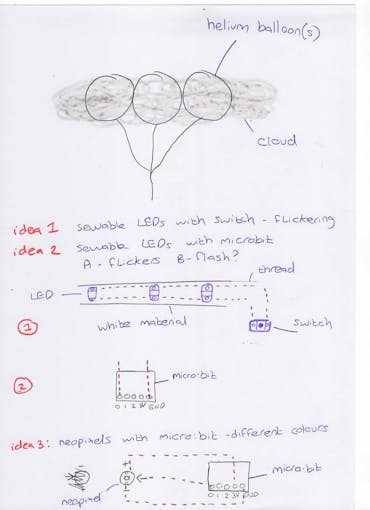 helium balloon(s)
cloud
idea 1 sewable LEDs with switch - flickering
idea 2 sewable LEDs with microbit
A - flickers B - flash?
thread
LED
white material
switch
1
2
micro:bit
0 1 2 3V GND
idea 3: neopixels with micro:bit - different colours
+
micro:bit
neopixel
0 1 2 3V GND